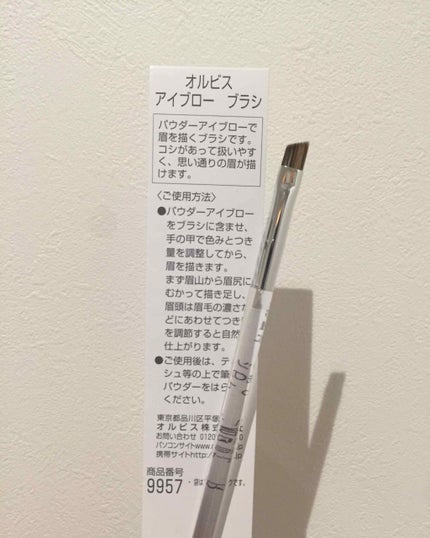 オルビス
アイブロー ブラシ
パウダーアイブローで
眉を描くブラシです。
コシがあって扱いやす
く、思い通りの眉が描
けます。
〈ご使用方法〉
●パウダーアイブロー
をブラシに含ませ、
手の甲で色みとつき
量を調整してから、
眉を描きます。
まず眉山から眉尻に
むかって描き足し、
眉頭は眉毛の濃さな
どにあわせてつき
を調節すると自然
仕上がります。
●ご使用後は、テ
シュ等の上で筆
パウダーをはら
ください。
東京都品川区平塚
オルビス株式
お問い合わせ 0120
パソコンサイトwww.
携帯サイトhttp:/
商品番号
9957